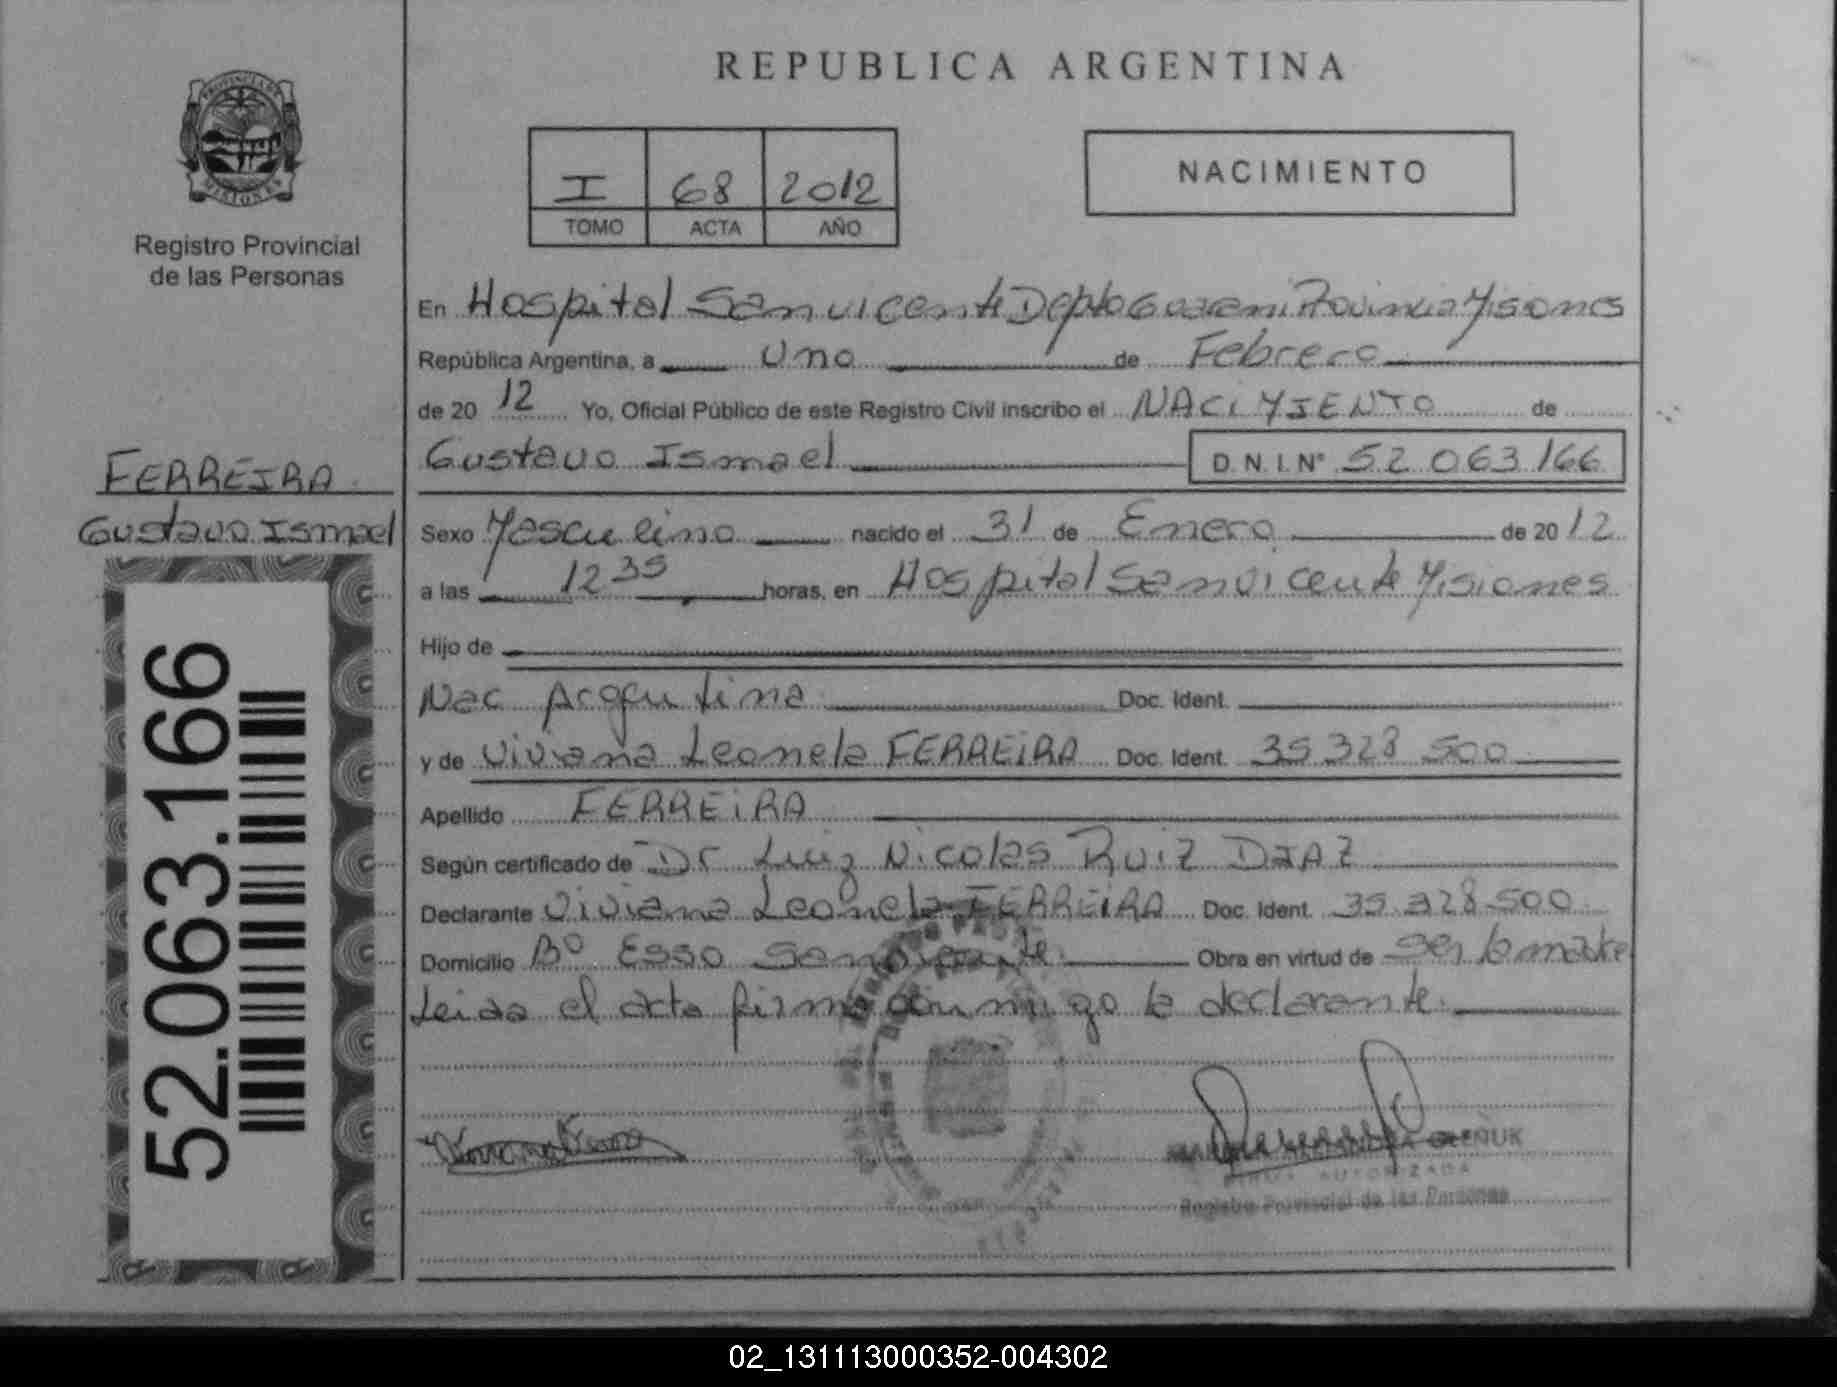 PROVINCIA DE
MISIONES
Registro Provincial
de las Personas
FERREIRA
Gustavo Ismael
52.063.166
REPUBLICA ARGENTINA
I 68 2012
TOMO ACTA AÑO
NACIMIENTO
En Hospital San vicente Depto Guarani Provincia Misiones
República Argentina, a Uno de Febrero
de 20 12 Yo, Oficial Público de este Registro Civil inscribo el NACIMIENTO de
Gustavo Ismael D.N.I.N° 52 063 166
Sexo Masculino nacido el 31 de Enero de 20 12
a las 12 35 horas, en Hospital San vicente Misiones
Hijo de
Nac Argentina Doc. Ident.
y de Viviana Leonela FERREIRA Doc. Ident. 35 328 500
Apellido FERREIRA
Según certificado de Dr Luiz Nicolas Ruiz DIAZ
Declarante Viviana Leonela FERREIRA Doc. Ident. 35 328 500
Domicilio B° ESSO San vicente Obra en virtud de ser la madre
Leida el acta firma conmigo la declarante.
OLEÑUK
AUTORIZADA
Registro Provincial de las Personas
02_131113000352-004302